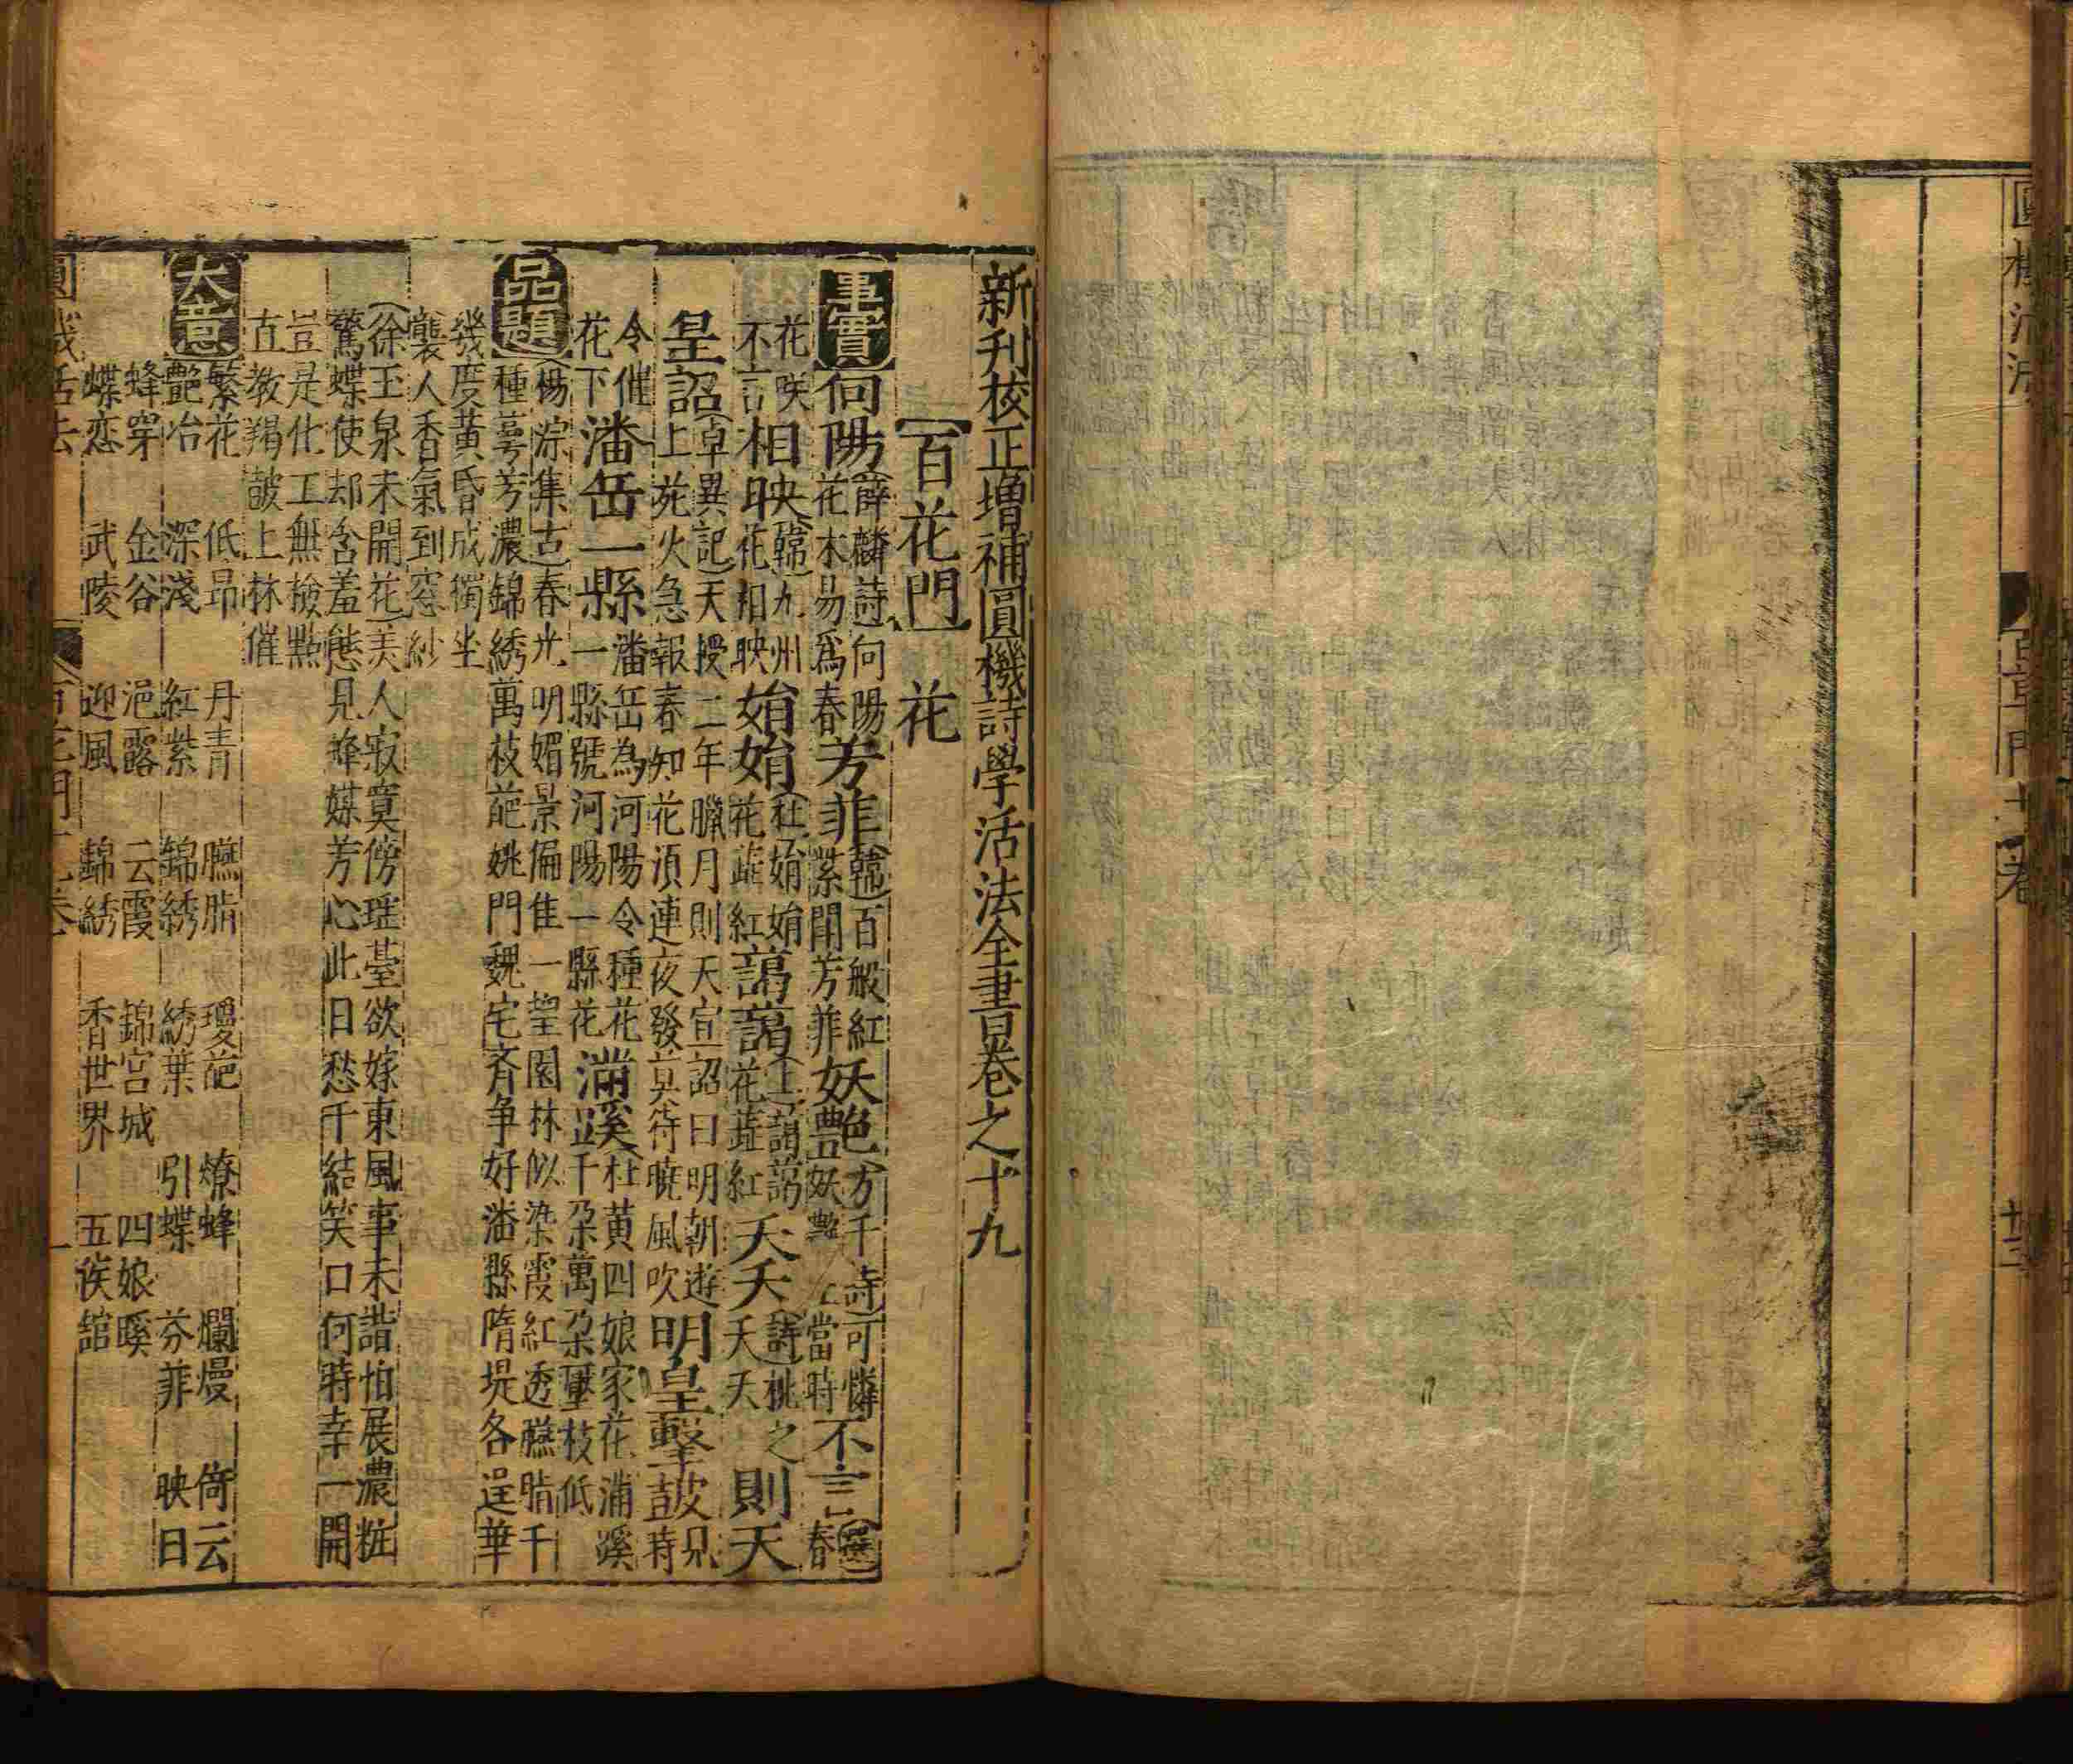 百草門
卷
廿三
新刊校正增補圓機詩學活法全書卷之十九
【百花門】 花
事實 向陽(薛麟詩)向陽花木易爲春 芳菲(韓)百般紅紫鬬芳菲 妖艷(方千詩)可憐妖艷正當時 不言(選)春
花咲不言 相映(韓)九州花相映 娟娟(杜)娟娟花蘂紅 藹藹(上)藹藹花蘂紅 夭夭(詩)桃之夭夭 則天
皇詔(卓異記)天授二年臘月則天宣詔曰明朝遊上苑火急報春知花湏連夜發莫待曉風吹 明皇擊鼓見時
令催花下 潘岳一縣 潘岳為河陽令種花一縣號河陽一縣花 滿蹊 杜黄四娘家花滿蹊千朶萬朶壓枝低
品題 (楊淙集古)春光明媚景偏隹一望園林似染霞紅透臙脂千種蕚芳濃錦綉萬枝葩姚門魏宅齊争好潘縣隋堤各逞華
幾度黄昏成獨坐襲人香氣到窓紗
(徐玉泉未開花)美人寂寞傍瑶臺欲嫁東風事未諧怕展濃粧驚蝶使却含羞態見蜂媒芳心此日愁千結笑口何時幸一開
豈是化工無檢點直教羯皷上林催
大意 繁花 低昂 丹青 臙脂 瓊葩 燎蜂 爛熳 倚云
艷冶 深淺 紅紫 錦綉 綉葉 引蝶 芬菲 映日
蜂穿 金谷 浥露 云霞 錦宫城 四娘蹊
蝶恋 武陵 迎風 錦綉 香世界 五侯舘
活法 百花門 卷 一